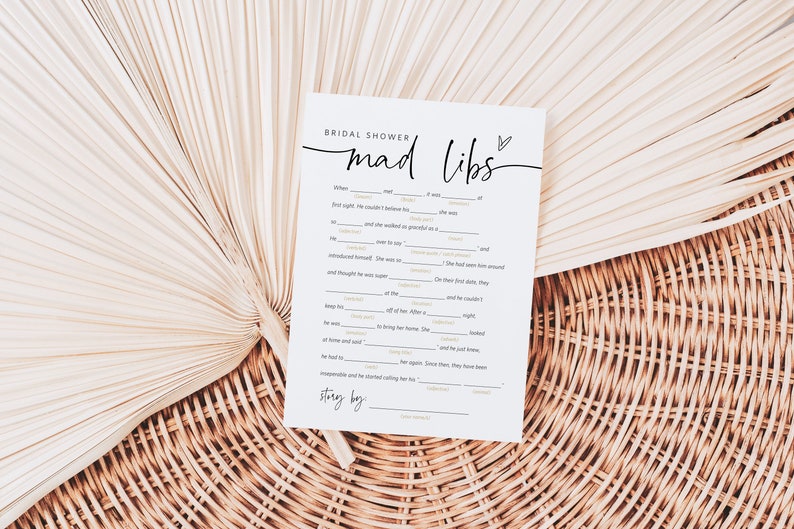 BRIDAL SHOWER
mad libs
When __________ met __________, it was __________ at
(Groom) (Bride) (emotion)
first sight. He couldn't believe his ________ she was
(body part)
so ________ and she walked as graceful as a __________
(adjective) (noun)
He __________ over to say "____________________" and
(verb/ed) (movie quote / catch phrase)
introduced himself. She was so __________! She had seen him around
(emotion)
and thought he was super __________. On their first date, they
(adjective)
______________ at the ____________ and he couldn't
(verb/ed) (location)
keep his ________ off of her. After a ________ night,
(body part) (adjective)
he was ________ to bring her home. She ________ looked
(emotion) (adverb)
at home and said "____________________" and he just knew,
(song title)
he had to ______________ her again. Since then, they have been
(verb)
inseperable and he started calling her his "__________ __________".
(adjective) (animal)
story by: ____________________
(your name/s)